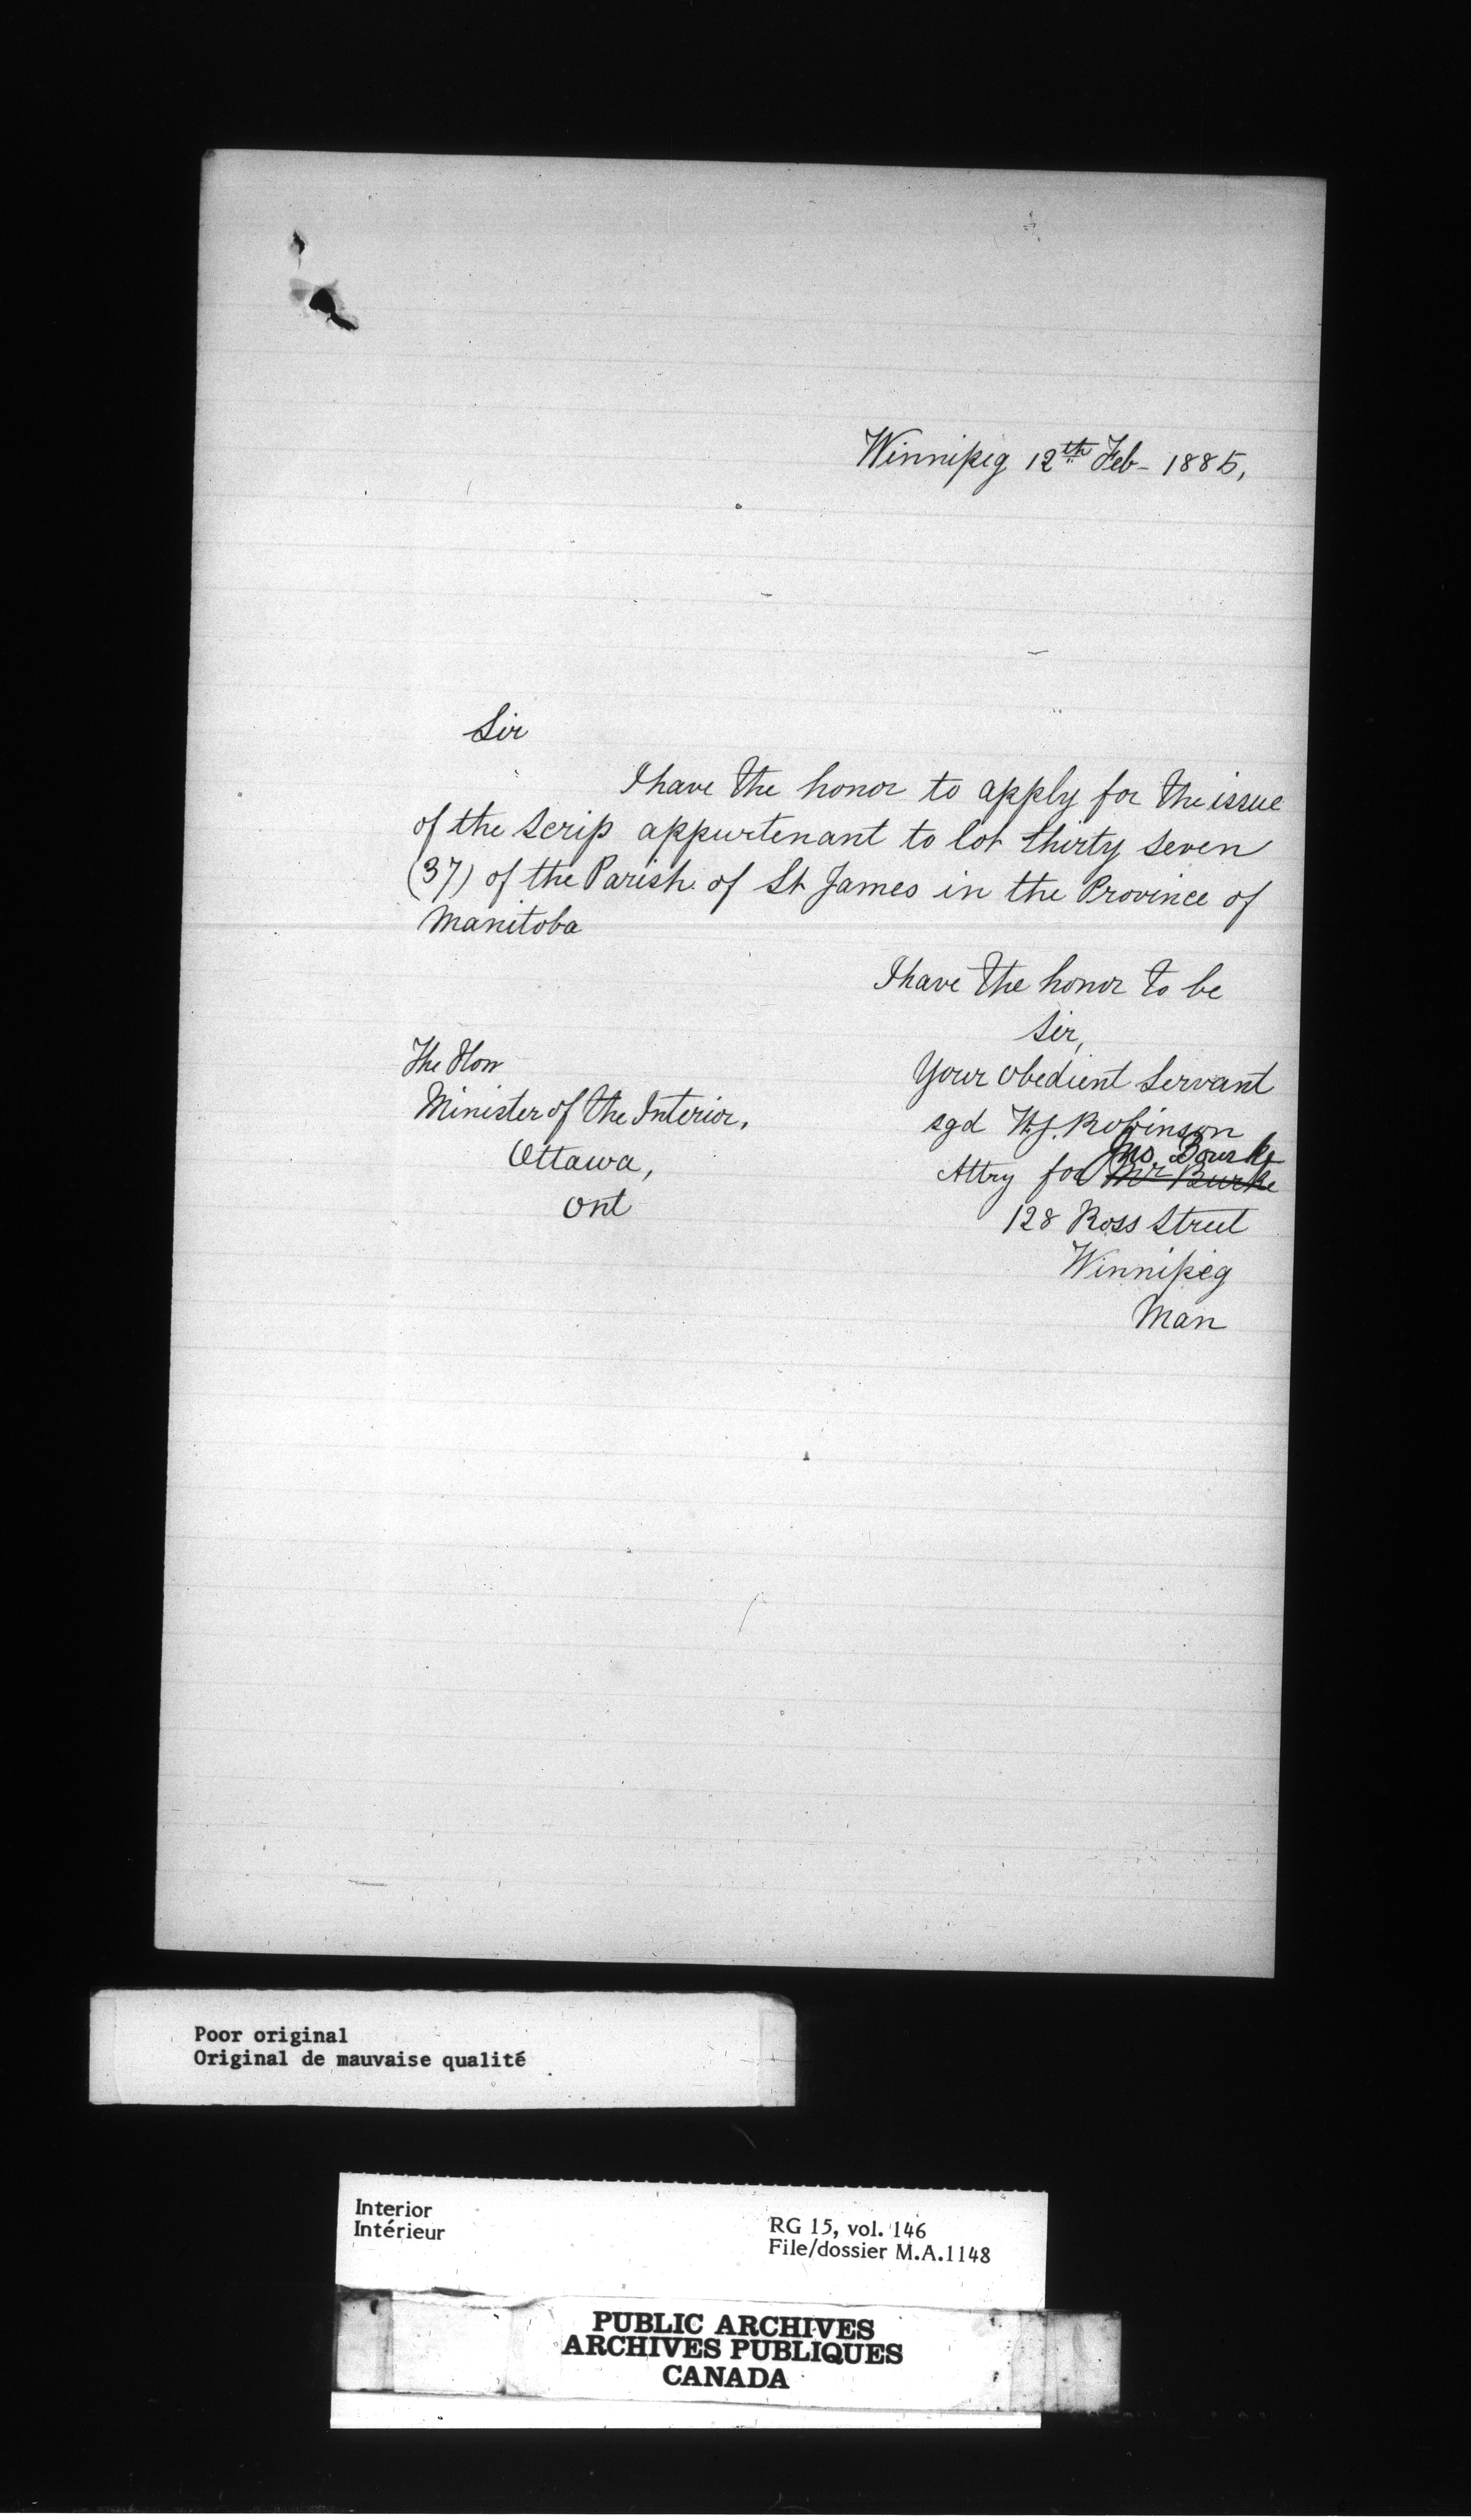 Winnipeg 12th Feb - 1885,
Sir
I have the honor to apply for the issue
of the Scrip appurtenant to lot thirty seven
(37) of the Parish of St James in the Province of
Manitoba
I have the honor to be
Sir,
Your obedient Servant
sgd W.J. Robinson
Jno. Bourke
Attry for Mr Burke
128 Ross Street
Winnipeg
Man
The Hon
Minister of the Interior,
Ottawa,
Ont
Poor original
Original de mauvaise qualité
Interior
Intérieur
RG 15, vol. 146
File/dossier M.A.1148
PUBLIC ARCHIVES
ARCHIVES PUBLIQUES
CANADA